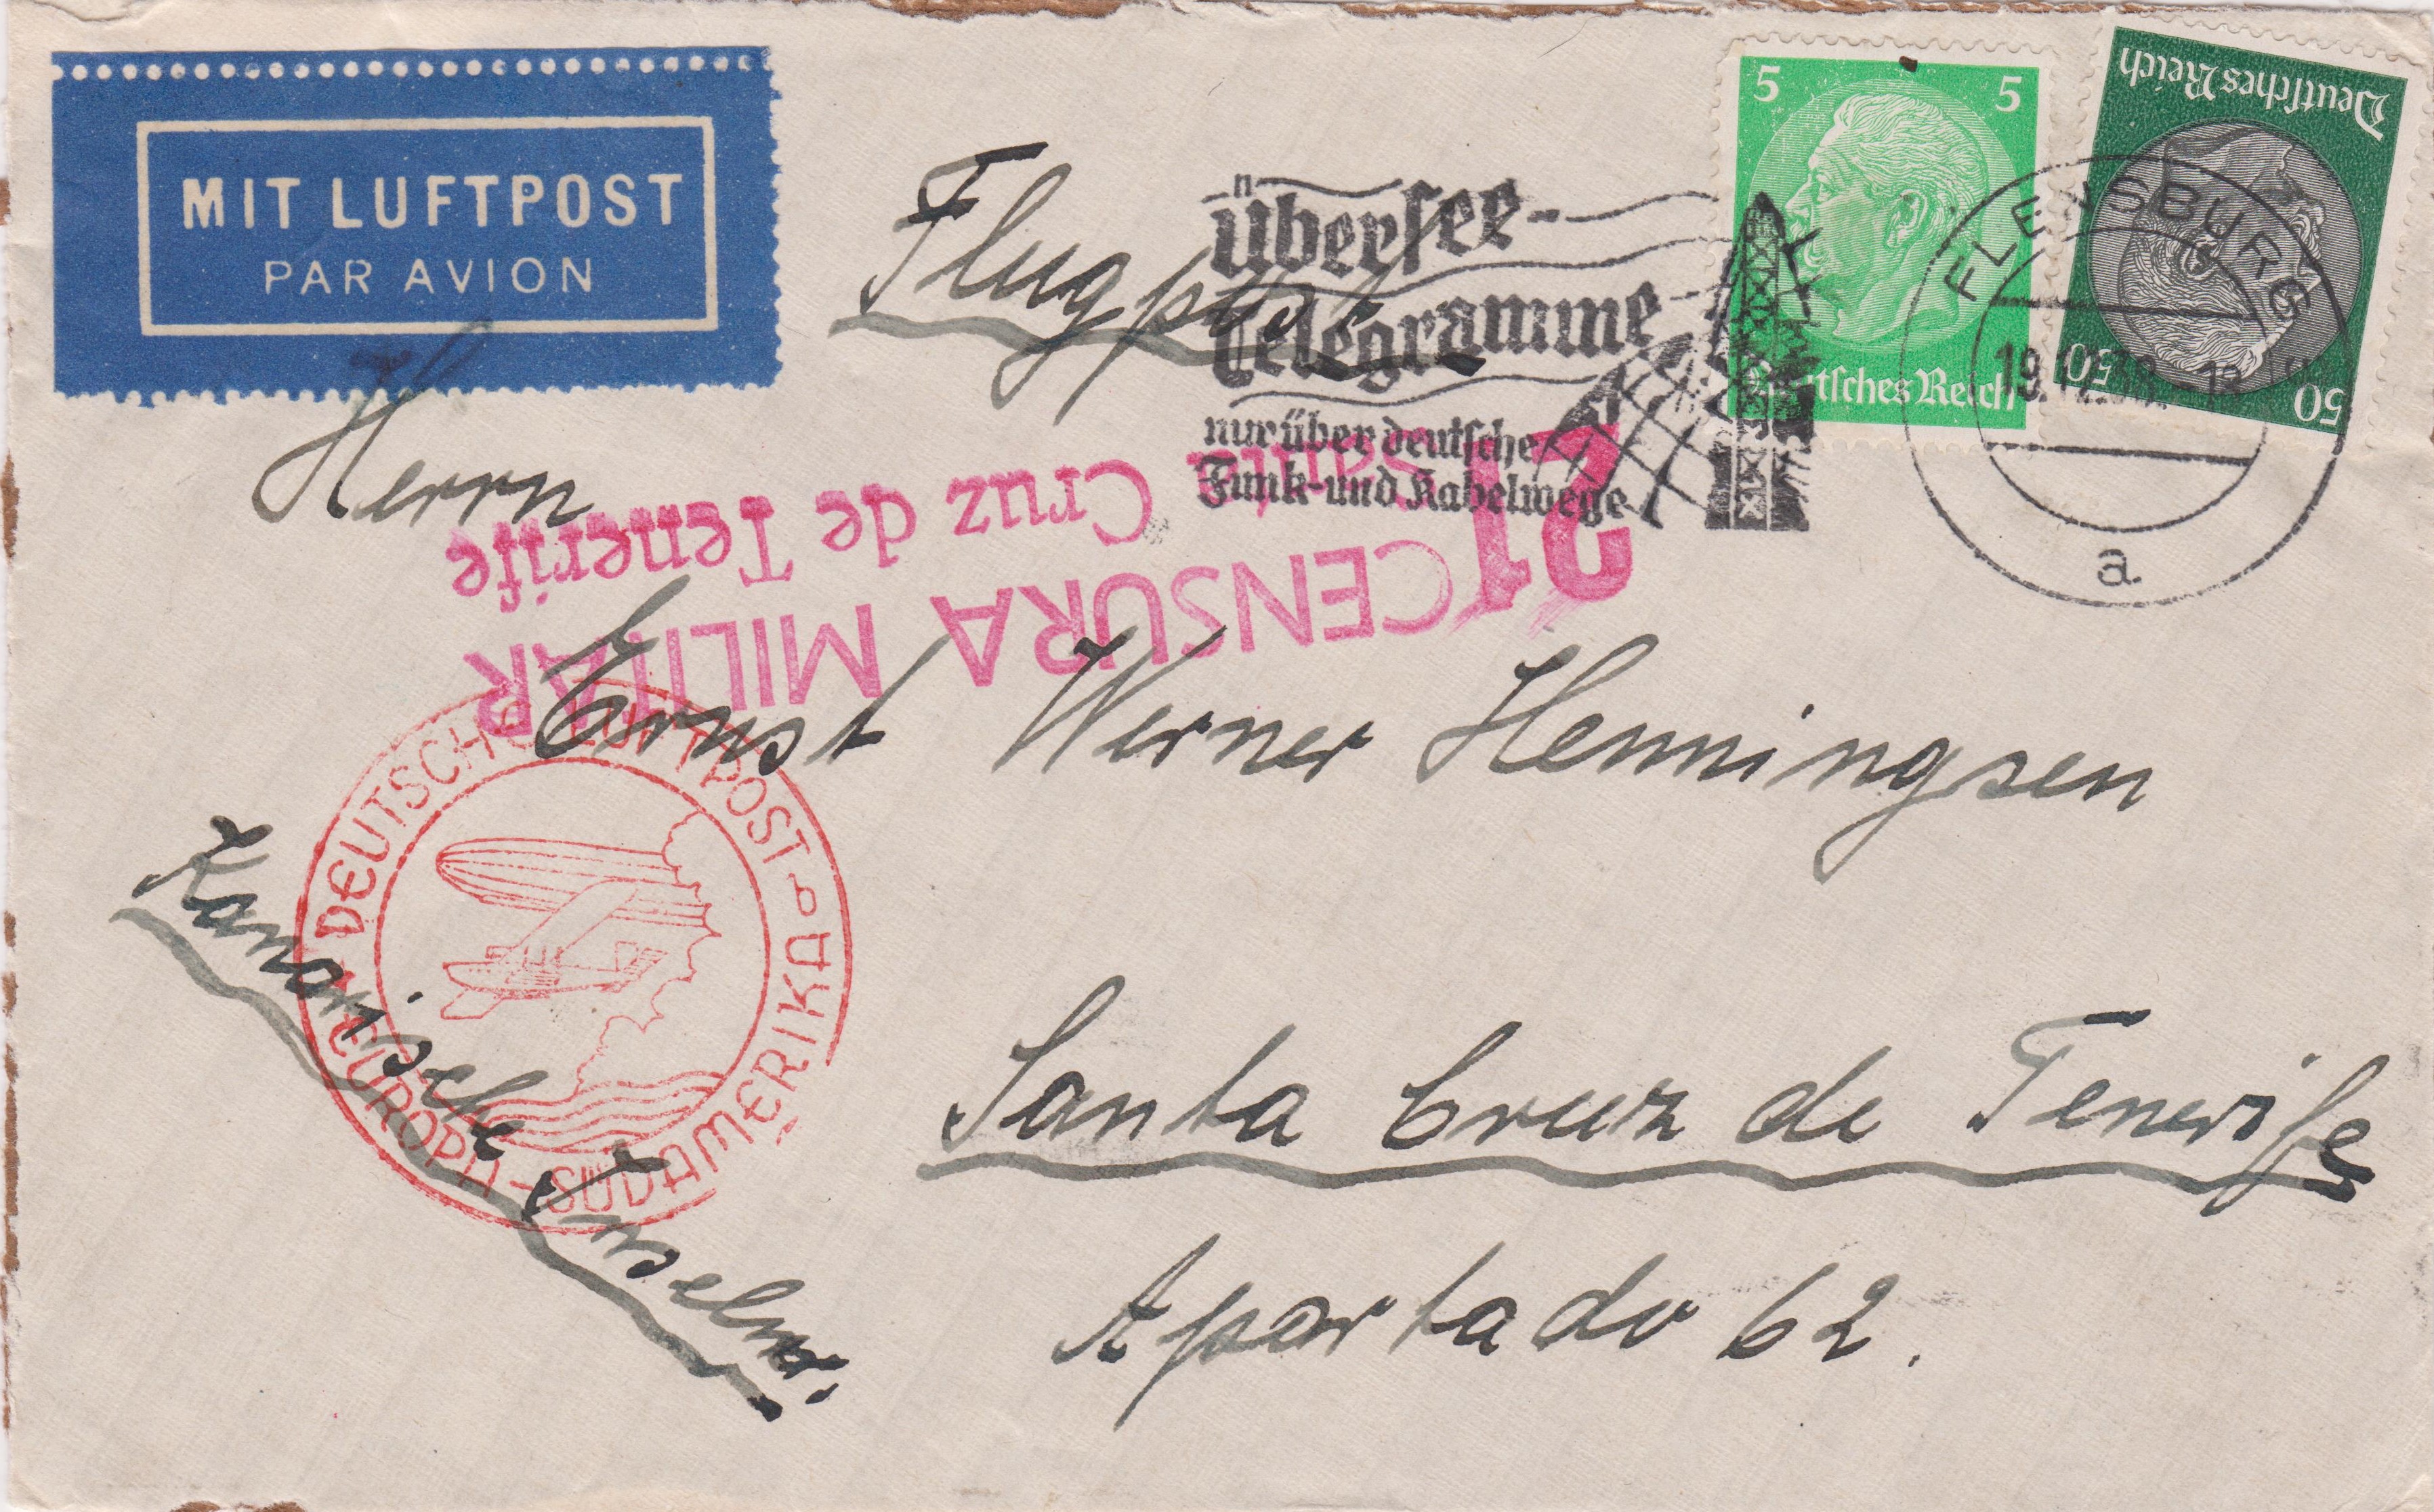 MIT LUFTPOST
PAR AVION
Flugpost
Übersee-
Telegramme
nur über deutsche
Funk- und Kabelwege
5 5
Deutsches Reich
Deutsches Reich
50 50
FLENSBURG
a
Herrn
Ernst Werner Henningsen
Santa Cruz de Tenerife
Apartado 62.
Kanarische Inseln.
21 CENSURA MILITAR
Santa Cruz de Tenerife
DEUTSCHE LUFTPOST
EUROPA - SÜDAMERIKA